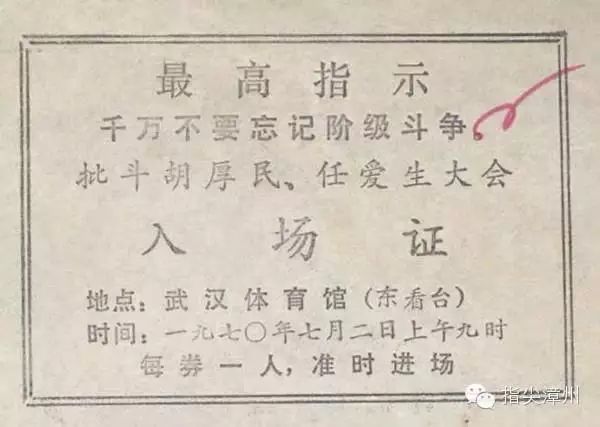 最高指示
千万不要忘记阶级斗争。
批斗胡厚民、任爱生大会
入场证
地点：武汉体育馆（东看台）
时间：一九七〇年七月二日上午九时
每券一人，准时进场
指尖漳州